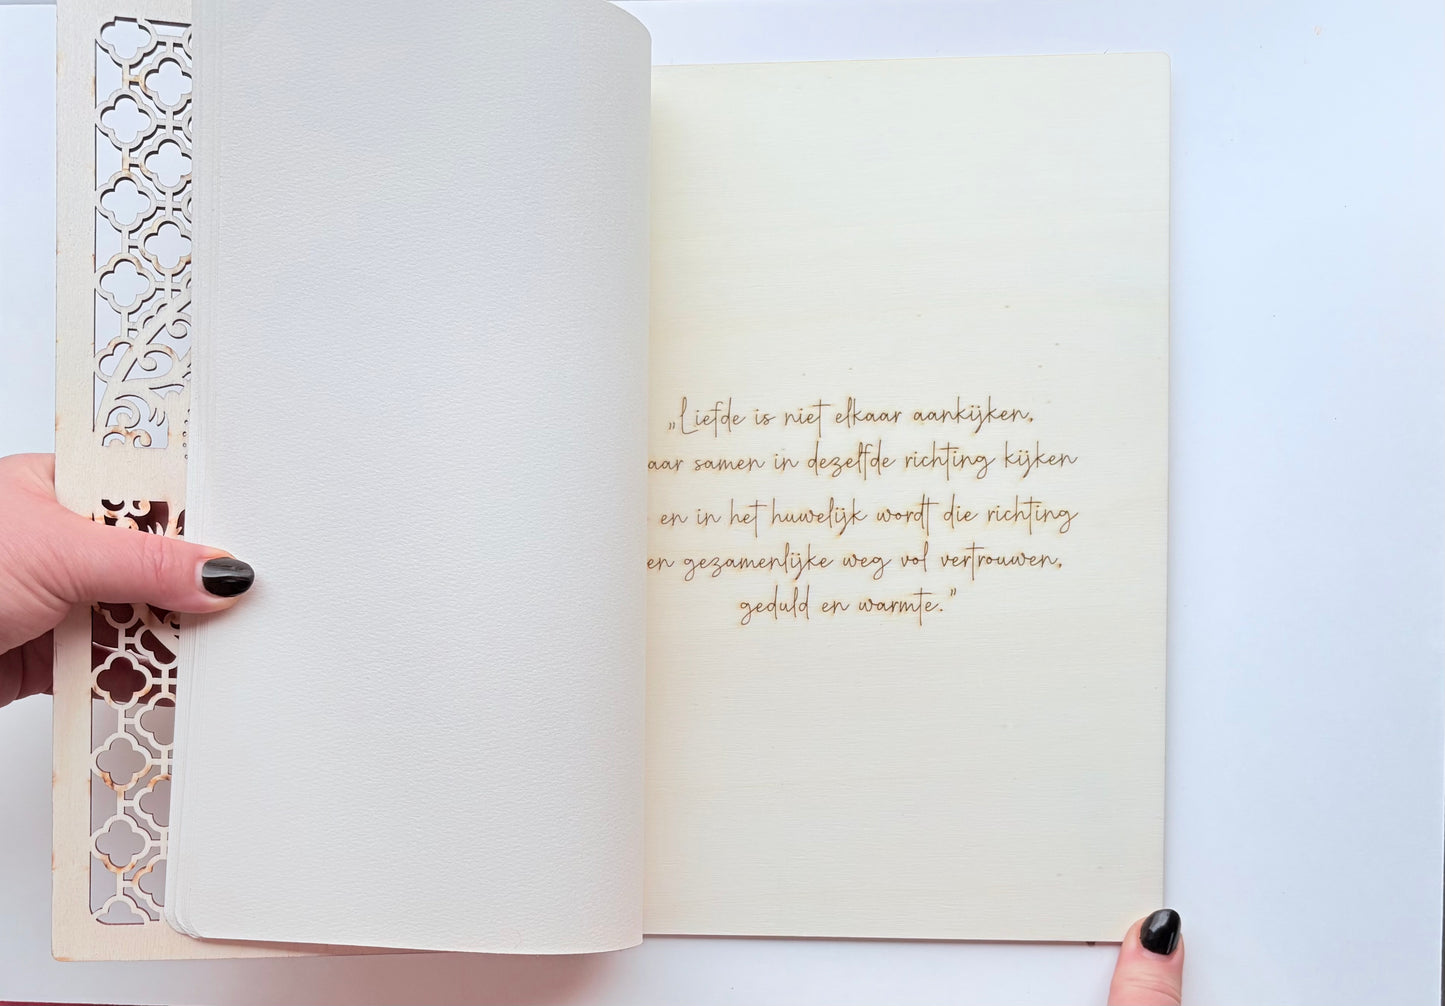 „Liefde is niet elkaar aankijken,
aar samen in dezelfde richting kijken
en in het huwelijk wordt die richting
en gezamenlijke weg vol vertrouwen,
geduld en warmte.”